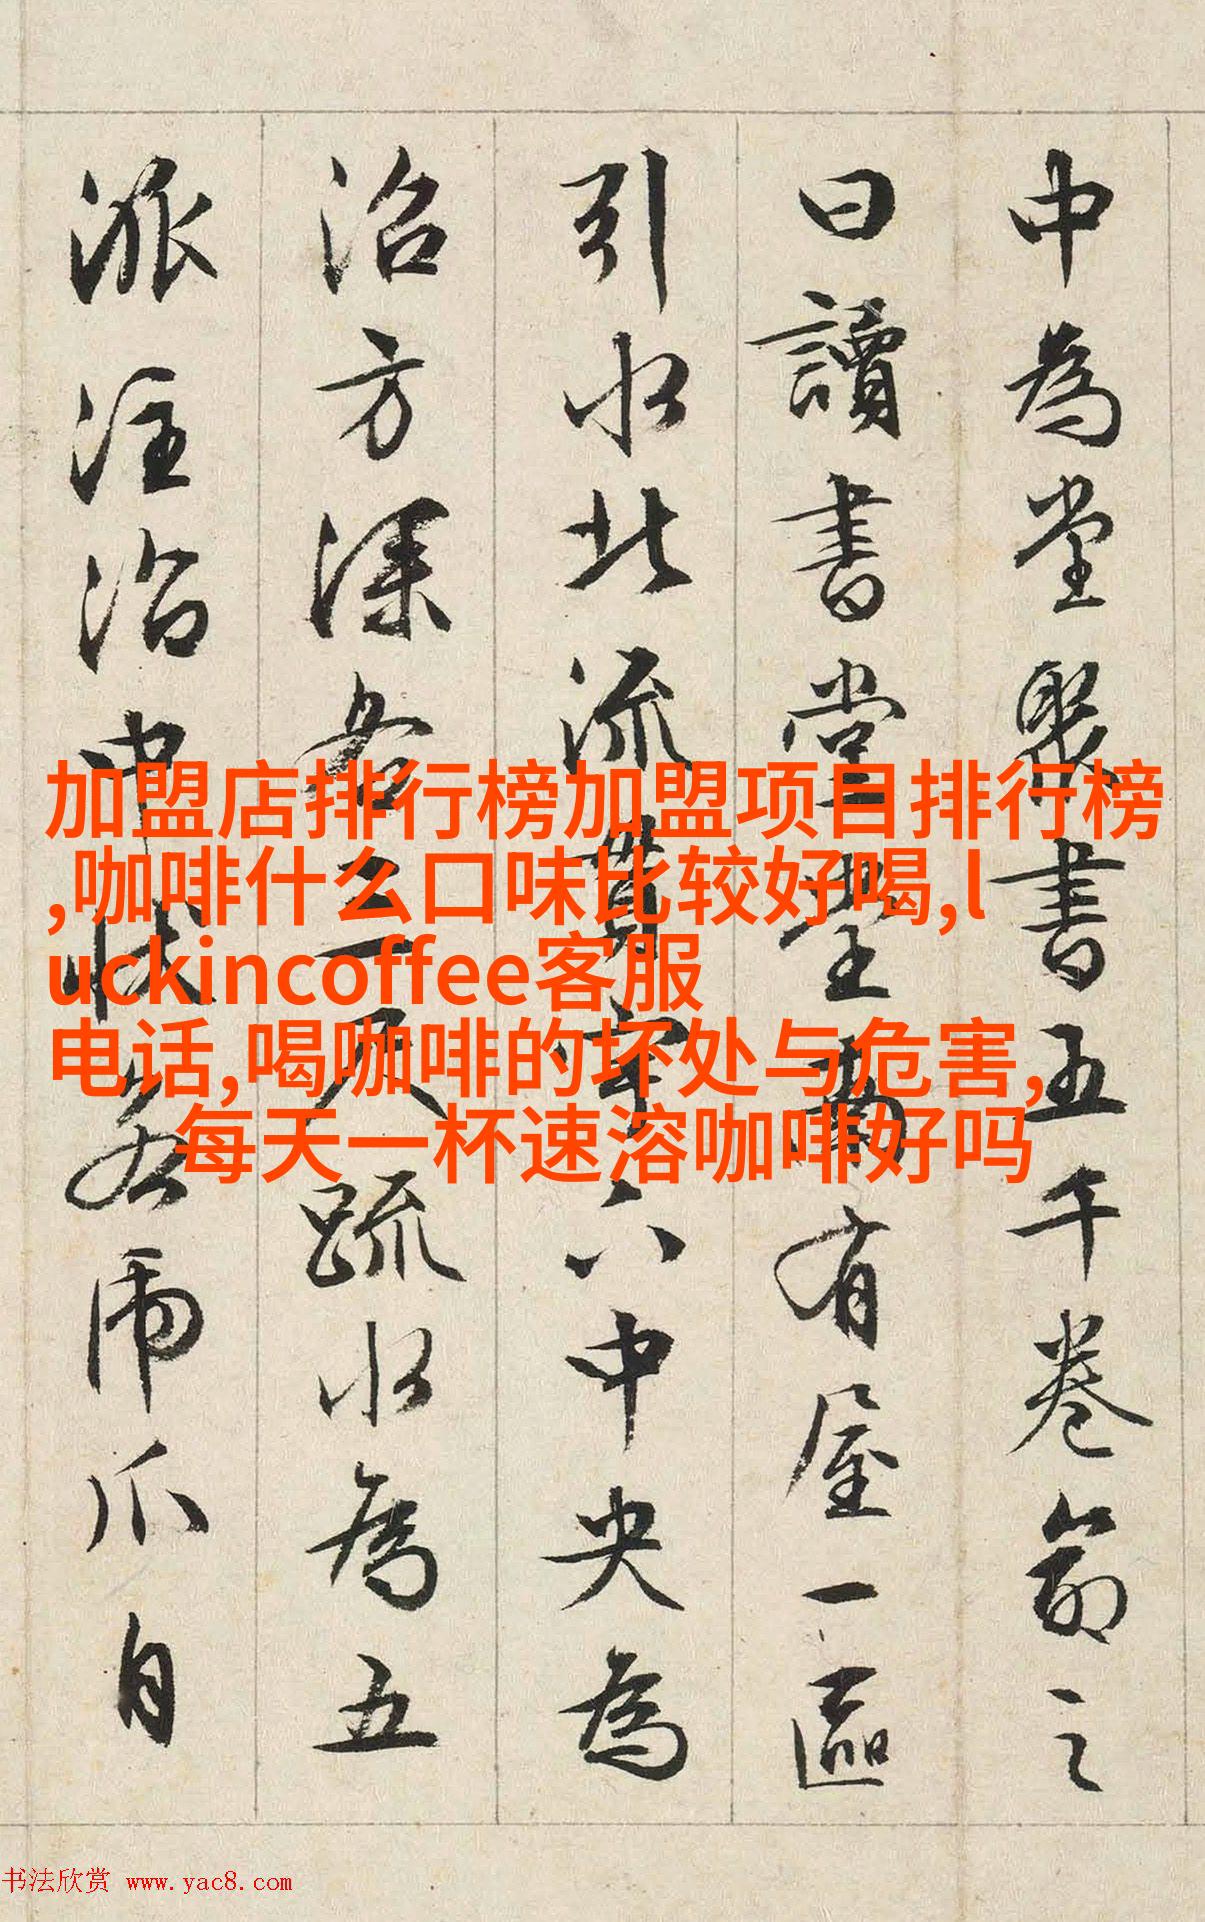 中為堂聚書五千卷命之
曰讀書堂堂南有屋一區
引水北流貫宇下中央為
沼方深各三尺疏水為五
派注沼中狀若虎爪自
加盟店排行榜加盟项目排行榜
,咖啡什么口味比较好喝,l
uckincoffee客服
电话,喝咖啡的坏处与危害,
每天一杯速溶咖啡好吗
书法欣赏 www.yac8.com